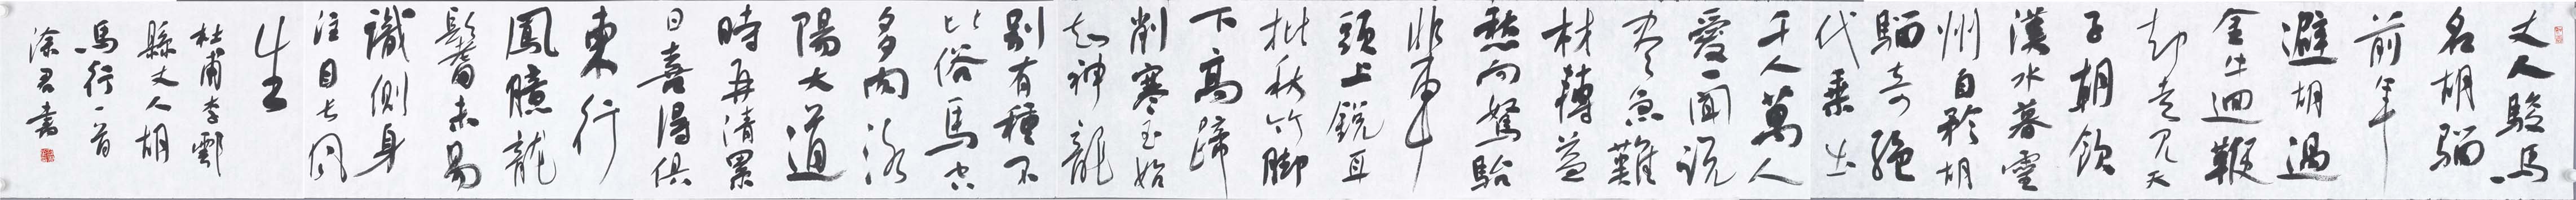 丈人駿馬
名胡騮
前年
避胡過
金牛迴鞭
却走見天
子朝飲
漢水暮靈
州自矜胡
騮奇絕
代乘出
千人萬人
愛一聞説
盡急難
材轉益
愁向駑駘
輩
頭上銳耳
批秋竹脚
下高蹄
削寒玉始
知神龍
別有種不
比俗馬空
多肉洛
陽大道
時再清累
日喜得俱
東行
鳳臆龍
鬐未易
識側身
注目長風
生
杜甫李鄠
縣丈人胡
馬行一首
涂君書